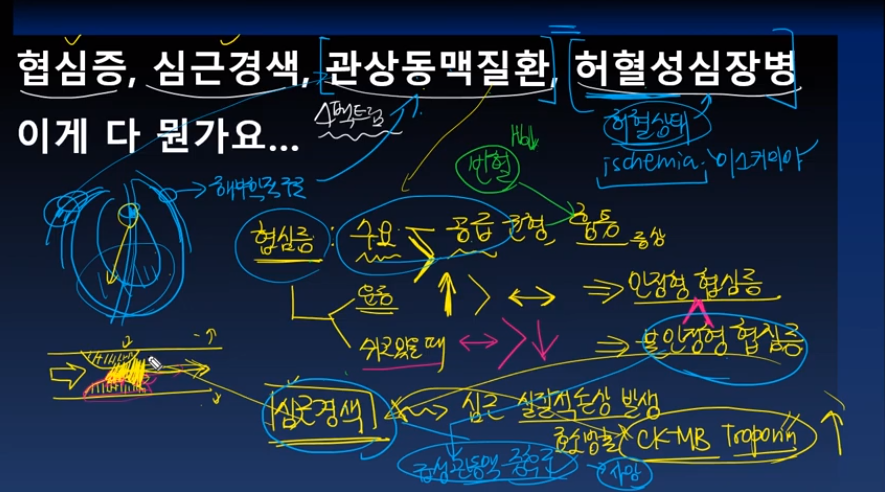 협심증, 심근경색, 관상동맥질환, 허혈성심장병
이게 다 뭔가요...
스펙트럼
허혈상태
ischemia. 이스키미아
빈혈 Hb↓
→해부학적구조
협심증 : 수요 < 공급 균형, 흉통 증상
운동 ↑ > ↔ ⇒ 안정형 협심증
쉬고있을 때 ↔ > ↓ ⇒ 불안정형 협심증
심근경색 심근 실질적손상 발생
효소방출 CK-MB Troponin ↑
급성관동맥 증후군 → 사망